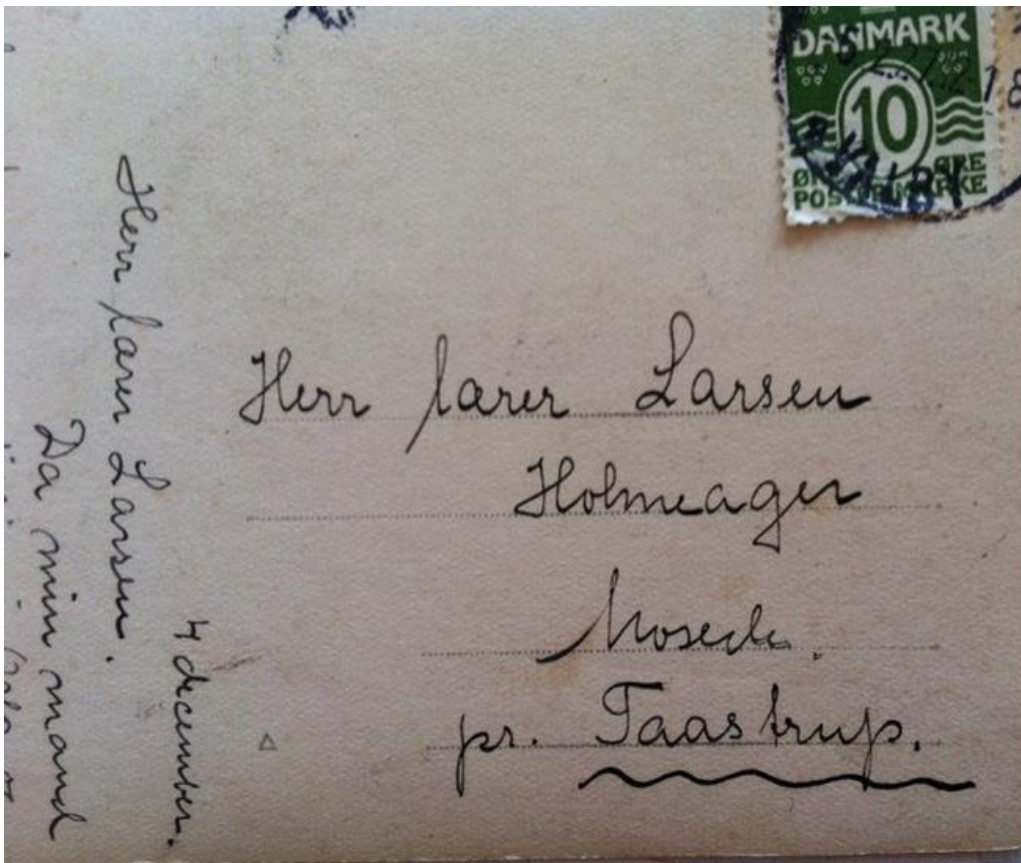 DANMARK
10
ØRE
POSTFRIMÆRKE
VALBY
18
Herr lærer Larsen
Holmeager
Mosede.
pr. Taastrup.
4 december.
Herr lærer Larsen.
Da min mand